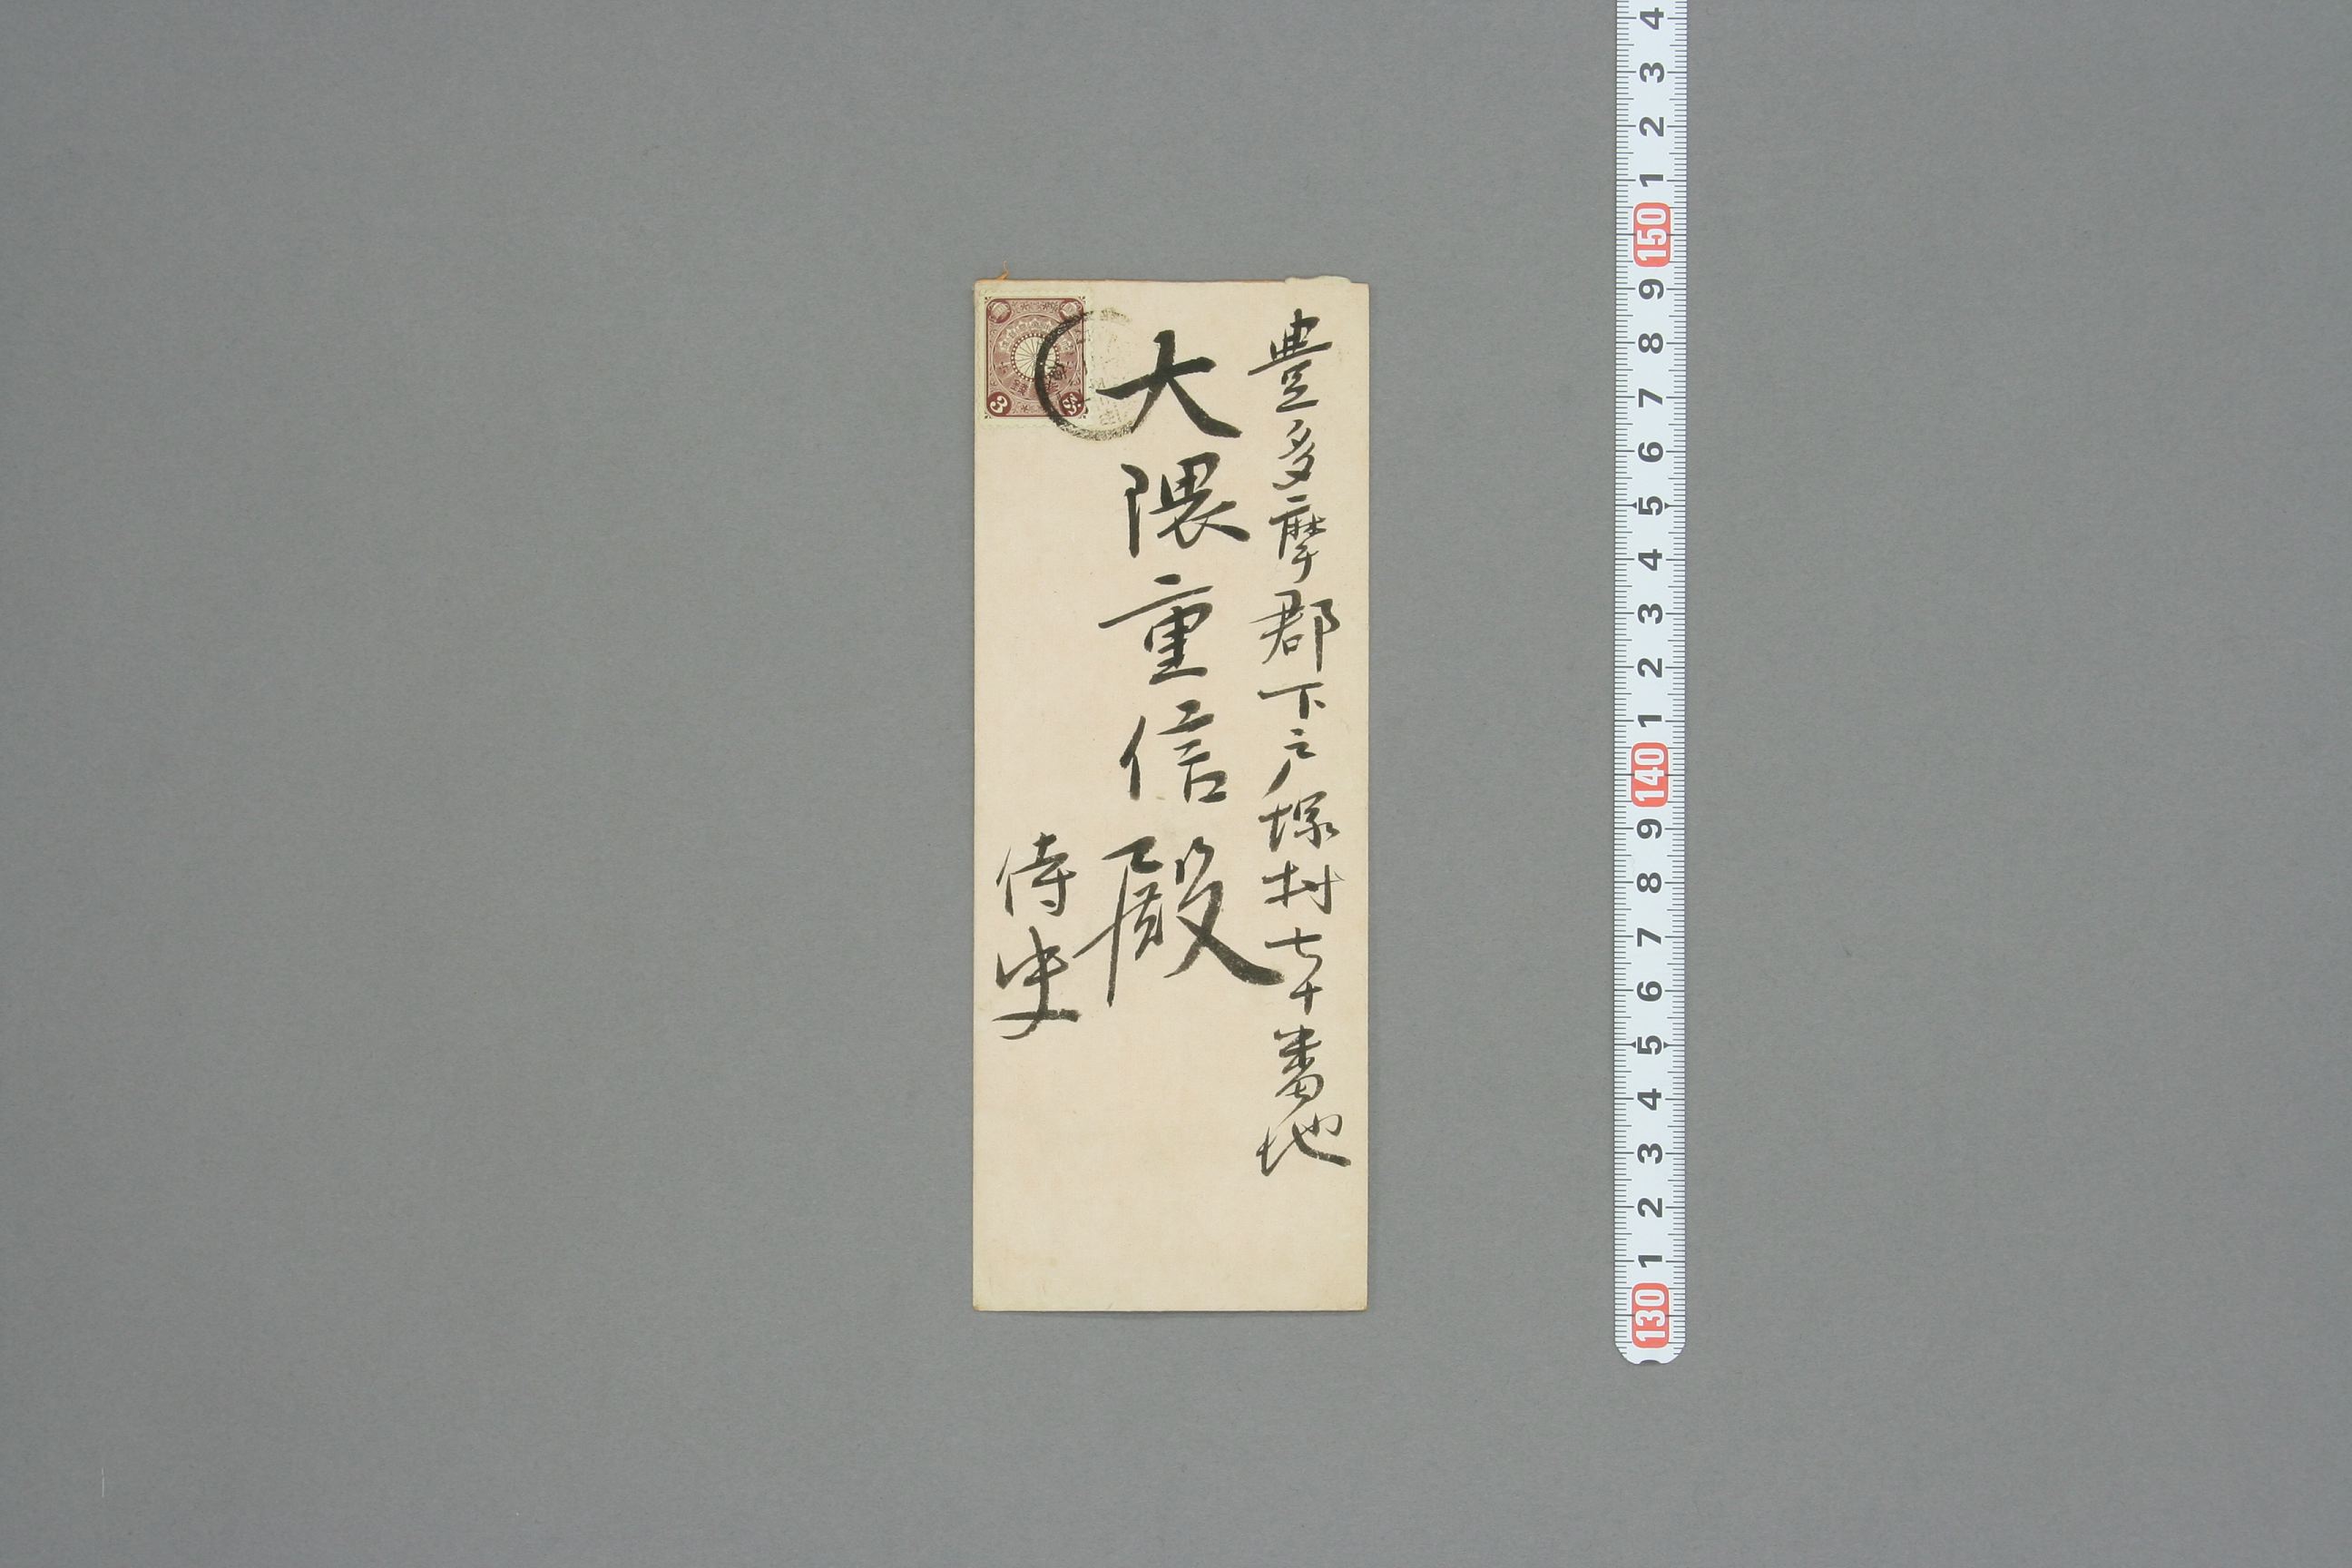 豊多摩郡下戸塚村七十番地
大隈重信殿
侍史
3
4
3
2
1
150
9
8
7
6
5
4
3
2
1
140
9
8
7
6
5
4
3
2
1
130